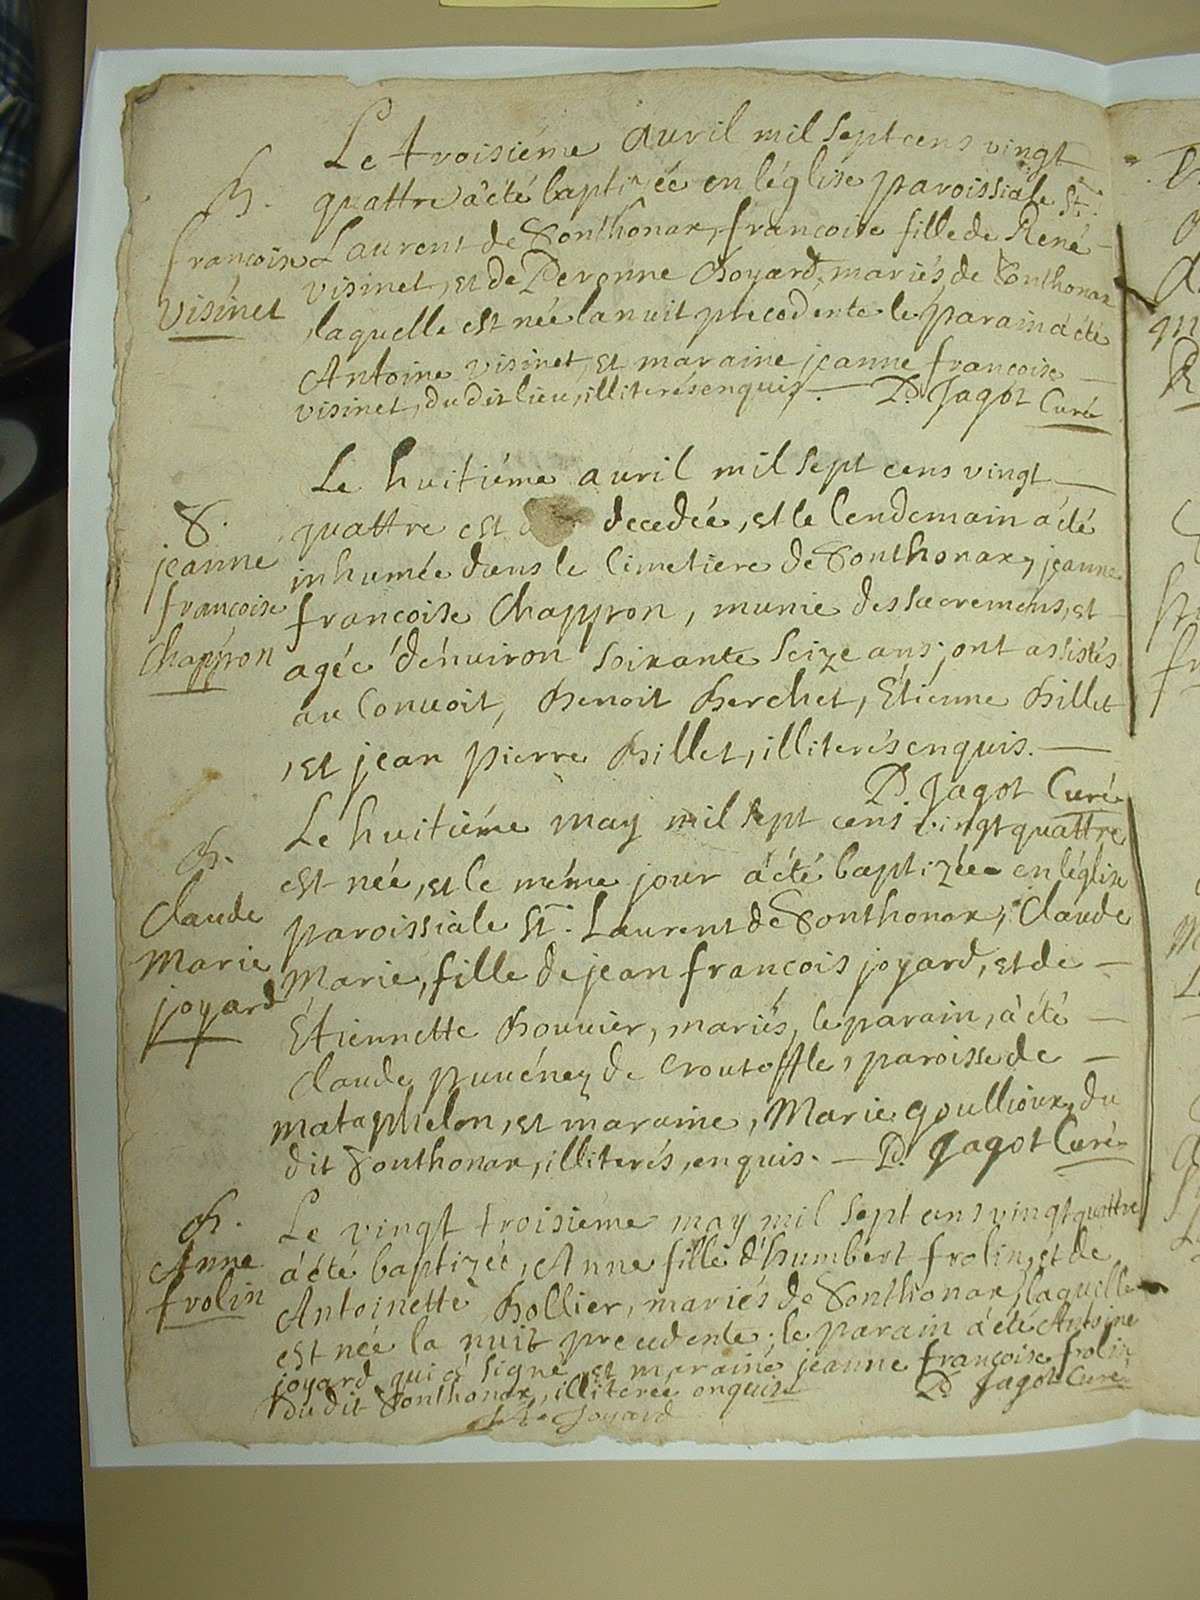 Le troisiéme avril mil sept cens vingt
B.
quattre a été baptizée en léglise paroissiale St.
françoise
Laurent de Sonthonax, francoise fille de René
visinet
visinet, et de Peronne Boyard, mariés, de Sonthonax
laquelle est née la nuit precedente le parain a été
Antoine visinet, et maraine jeanne françoise
visinet, du dit lieu, illiterés enquis. D. Jagot Curé
Le huitiéme avril mil sept cens vingt
S.
quattre est decedée, et le lendemain a été
jeanne
inhumée dans le Cimetiere de Sonthonax, jeanne
francoise
francoise Chappron, munie des sacremens, et
Chappron
agée d'énviron soixante seize ans; ont assistés
au Convoit, Benoit Berchet, Étienne Billet
, et jean pierre Billet, illiterés enquis.
D. Jagot Curé
Le huitiéme may mil sept cens vingt quattre
B.
est née, et le méme jour a été baptizée en léglise
Claude
paroissiale St. Laurent de Sonthonax, Claude
Marie
Marie, fille de jean francois joyard, et de
joyard
Étiennette Bouvier, mariés, le parain, a été
Claude de Croutoffle, paroisse de
mataphelon, et maraine, Marie goullioux, du
dit Sonthonax, illiterés, enquis. D. Jagot Curé
B.
Le vingt troisiéme may mil sept cens vingt quattre
Anne
a été baptizée, Anne fille d'humbert frolin, et de
frolin
Antoinette Bollier, mariés de Sonthonax, laquelle
est née la nuit precedente; le parain a été Antoine
joyard qui a signé, et maraine jeanne françoise frolin
du dit Sonthonax, illiterée enquise D. Jagot Curé
Joyard